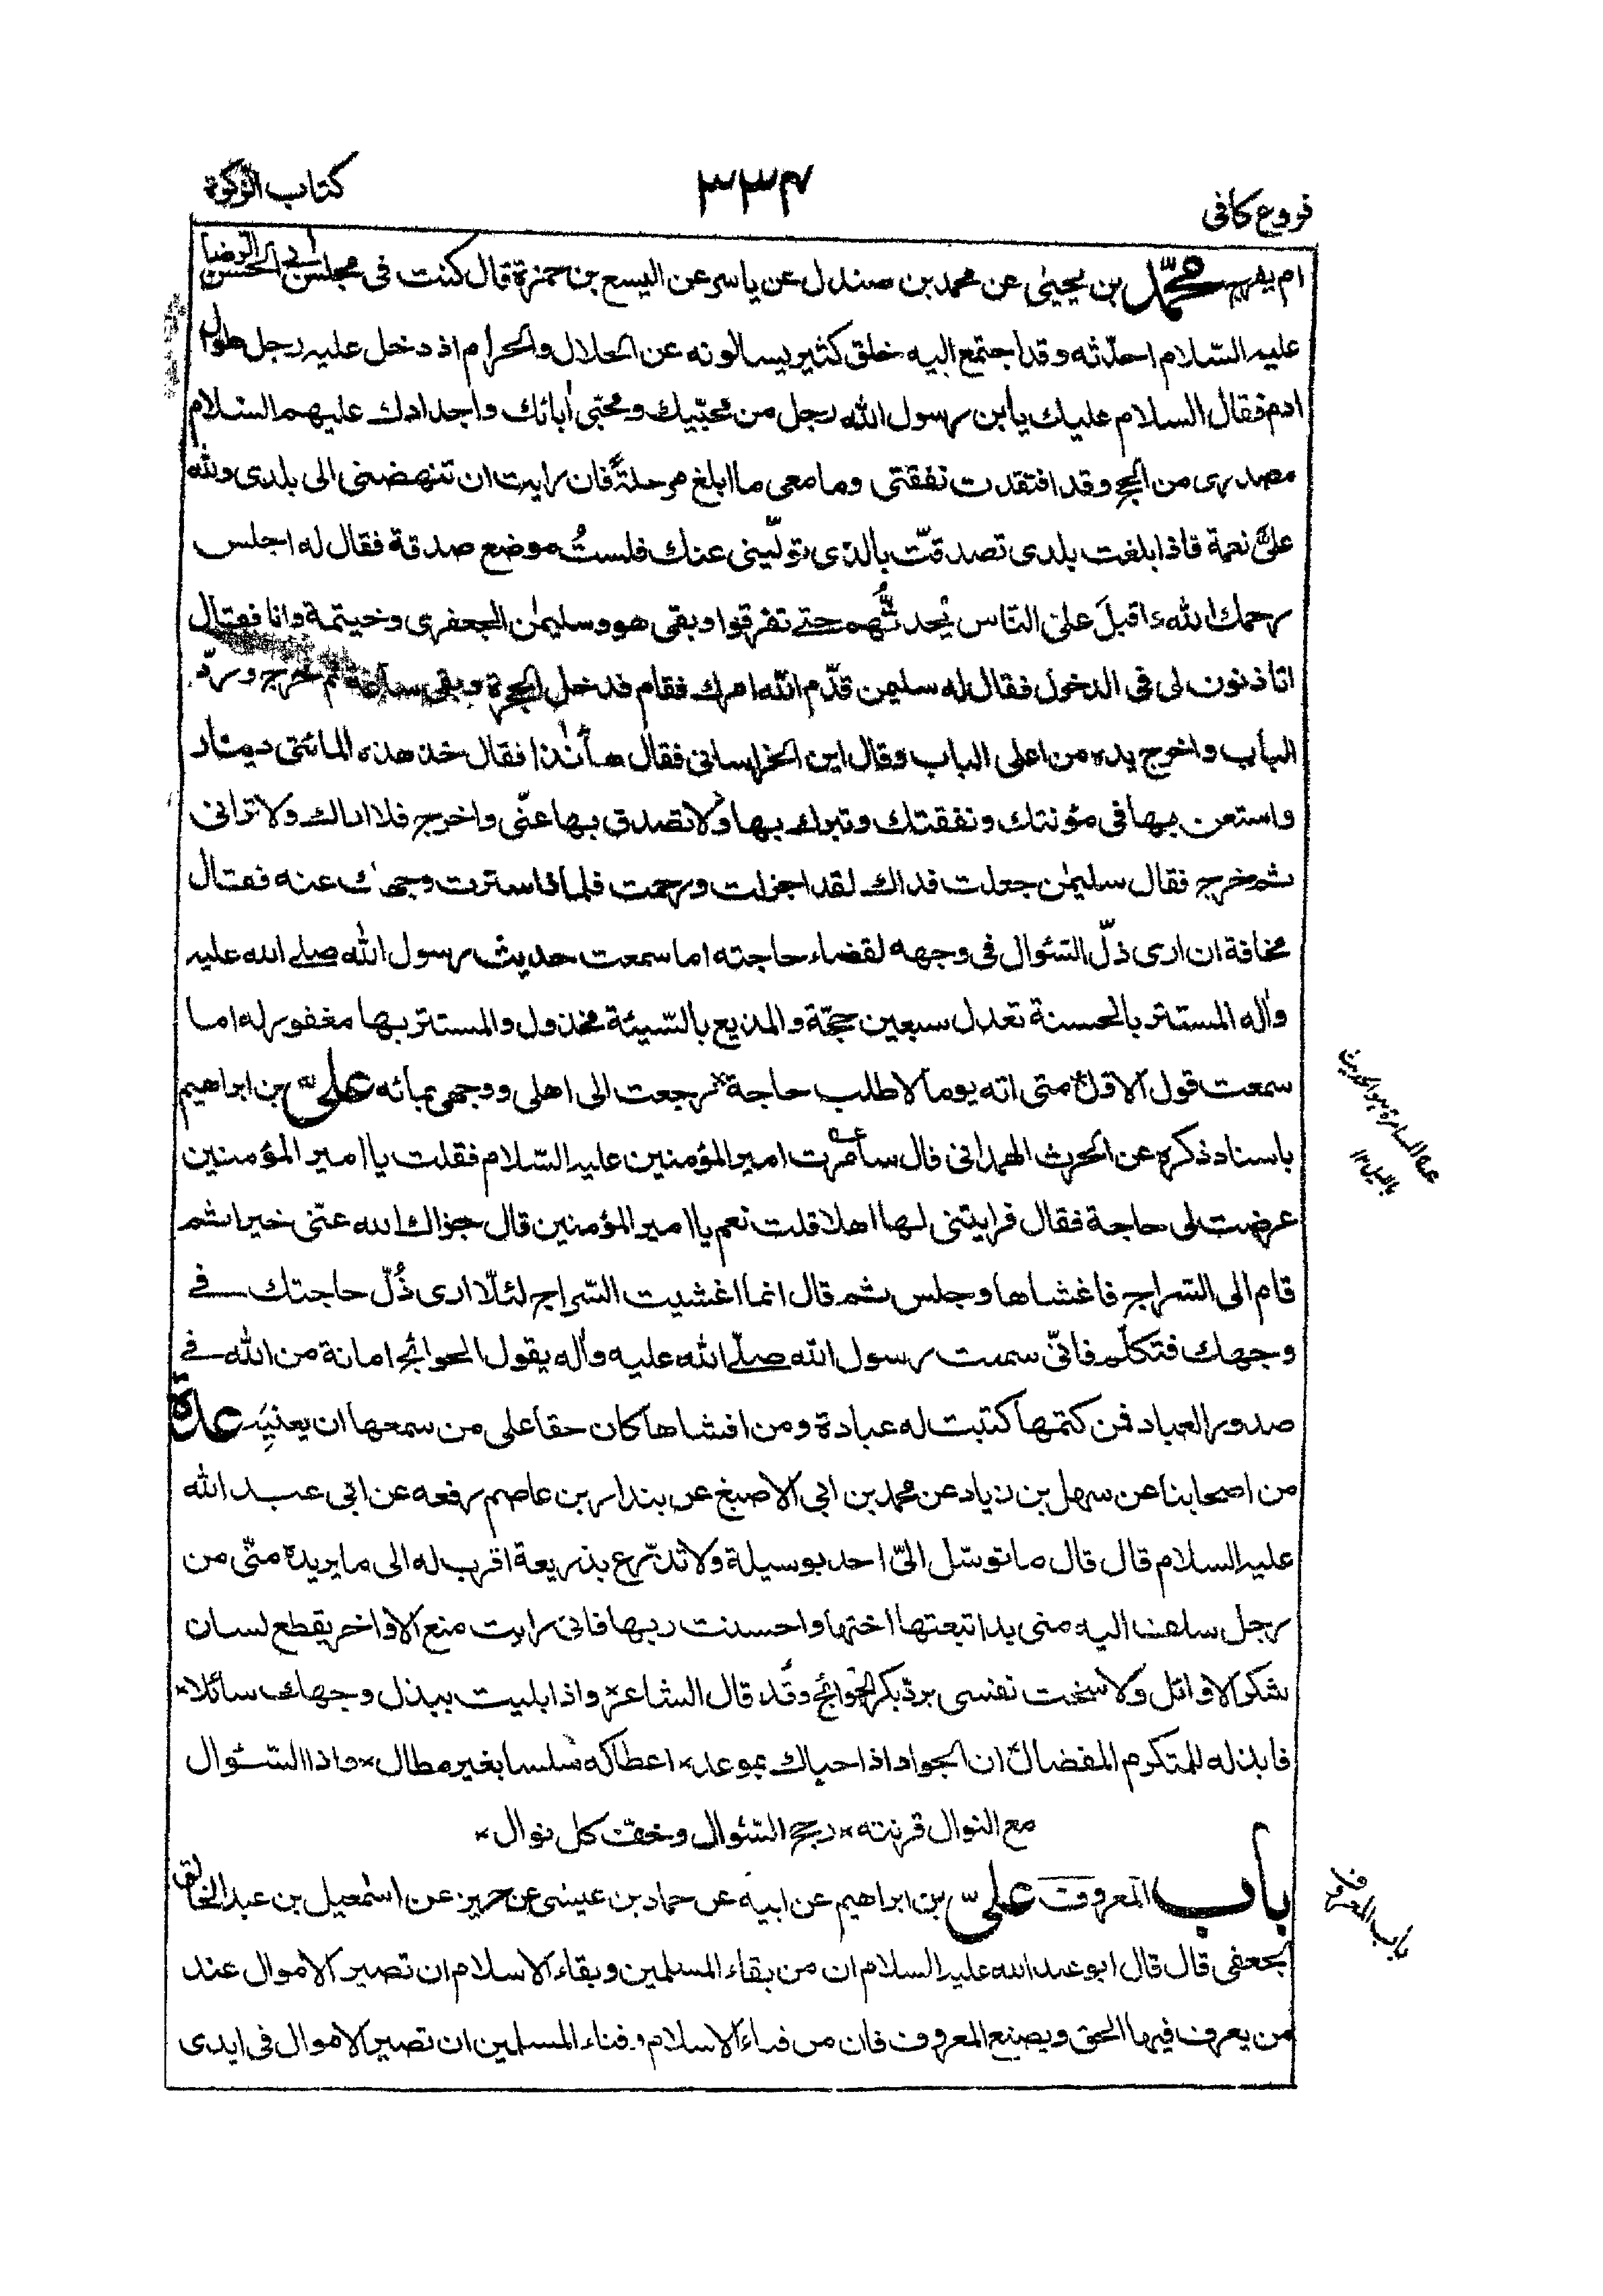 فروع كافى
٣٣٤
كتاب الزكوة
ام يفرج محمّد بن يحيىٰ عن محمد بن صندل عن ياسر عن اليسع بن حمزة قال كنت فى مجلس ابى الحسن الرضا
عليه السّلام احدّثه وقد اجتمع اليه خلق كثير يسالونه عن الحلال والحرام اذ دخل عليه رجل طوال
ادم فقال السلام عليك يا بن رسول الله رجل من محبّيك ومحبّى اٰبائك واجدادك عليهم السّلام
مصدرى من الحج وقد افتقدت نفقتى وما معى ما ابلغ مرحلةً فان رايت ان تنهضنى الى بلدى ولله
علىّ نعمة فاذا بلغت بلدى تصدقتّ بالذى تولّينى عنك فلستُ موضع صدقة فقال له اجلس
رحمك الله واقبل على النّاس يُحدثُهم حتى تفرقوا وبقى هو وسليمٰن الجعفرى وخيثمة وانا فقال
اتاذنون لى فى الدخول فقال له سليمن قدّم الله امرك فقام فدخل الحجرة وبقى ساعة ثم خرج وردّ
الباب واخرج يده من اعلى الباب وقال اين الخراسانى فقال ها أنذا فقال خذ هذه المائتى دينار
واستعن بها فى مؤنتك ونفقتك وتبرك بها ولا تصدق بها عنّى واخرج فلا اراك ولا ترانى
ثم خرج فقال سليمٰن جعلت فداك لقد اجزلت ورحمت فلماذا سترت وجهك عنه فقال
مخافة ان ارى ذلّ السّئوال فى وجهه لقضاء حاجته اما سمعت حديث رسول الله صلى الله عليه
واٰله المستتر بالحسنة تعدل سبعين حجّة والمذيع بالسّيئة مخذول والمستتر بها مغفور له اما
سمعت قول الاول × متى اته يوما لاطلب حاجة × رجعت الى اهلى ووجهى بمائه علىّ بن ابراهيم
باسناد ذكره عن الحرث الهمدانى قال سامرت امير المؤمنين عليه السّلام فقلت يا امير المؤمنين
عرضت لى حاجة فقال فرايتنى لها اهلا قلت نعم يا امير المؤمنين قال جزاك الله عنّى خيرا ثم
قام الى السّراج فاغشاها وجلس ثم قال انما اغشيت السّراج لئلّا ارى ذُلّ حاجتك فى
وجهك فتكلّم فانّى سمعت رسول الله صلّى الله عليه واٰله يقول الحوائج امانة من الله فى
صدور العباد فمن كتمها كتبت له عبادة ومن افشاها كان حقا على من سمعها ان يعنيه عدة
من اصحابنا عن سهل بن زياد عن محمد بن ابى الاصبغ عن بندار بن عاصم رفعه عن ابى عبد الله
عليه السلام قال قال ما توسّل الىّ احد بوسيلة ولا تذرّع بذريعة اقرب له الى ما يريده منّى من
رجل سلف اليه منى يد اتبعتها اختها واحسنت ربها فانى رايت منع الاواخر يقطع لسان
شكر الاوائل ولا سخت نفسى بردّ بكر الحوائج وقَد قال الشاعر × واذا بليت ببذل وجهك سائلا ×
فابذله للمتكرم المفضال × ان الجواد اذا حباك بموعد × اعطاكه سلسا بغير مطال × واذا السّئوال
مع النوال قرنته × رجح السّئوال وخفّ كل نوال ×
باب المعروف علىّ بن ابراهيم عن ابيه عن حماد بن عيسى عن حريز عن اسمٰعيل بن عبد الخالق
الجعفى قال قال ابو عبد الله عليه السلام ان من بقاء المسلمين وبقاء الاسلام ان تصير الاموال عند
من يعرف فيها الحق ويصنع المعروف فان من فناء الاسلام وفناء المسلمين ان تصير الاموال فى ايدى
باب المعروف